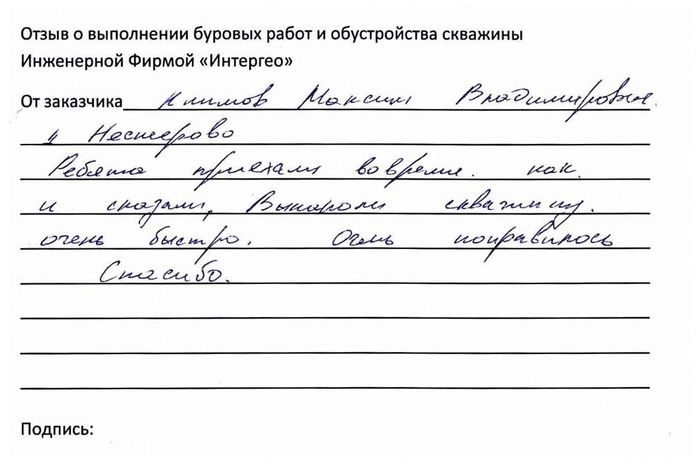 Отзыв о выполнении буровых работ и обустройства скважины
Инженерной Фирмой «Интергео»
От заказчика Климов Максим Владимирович.
Нестерово
Ребята приехали вовремя. как
и сказали,  скважину.
очень быстро. Очень понравилось
Спасибо.
Подпись: